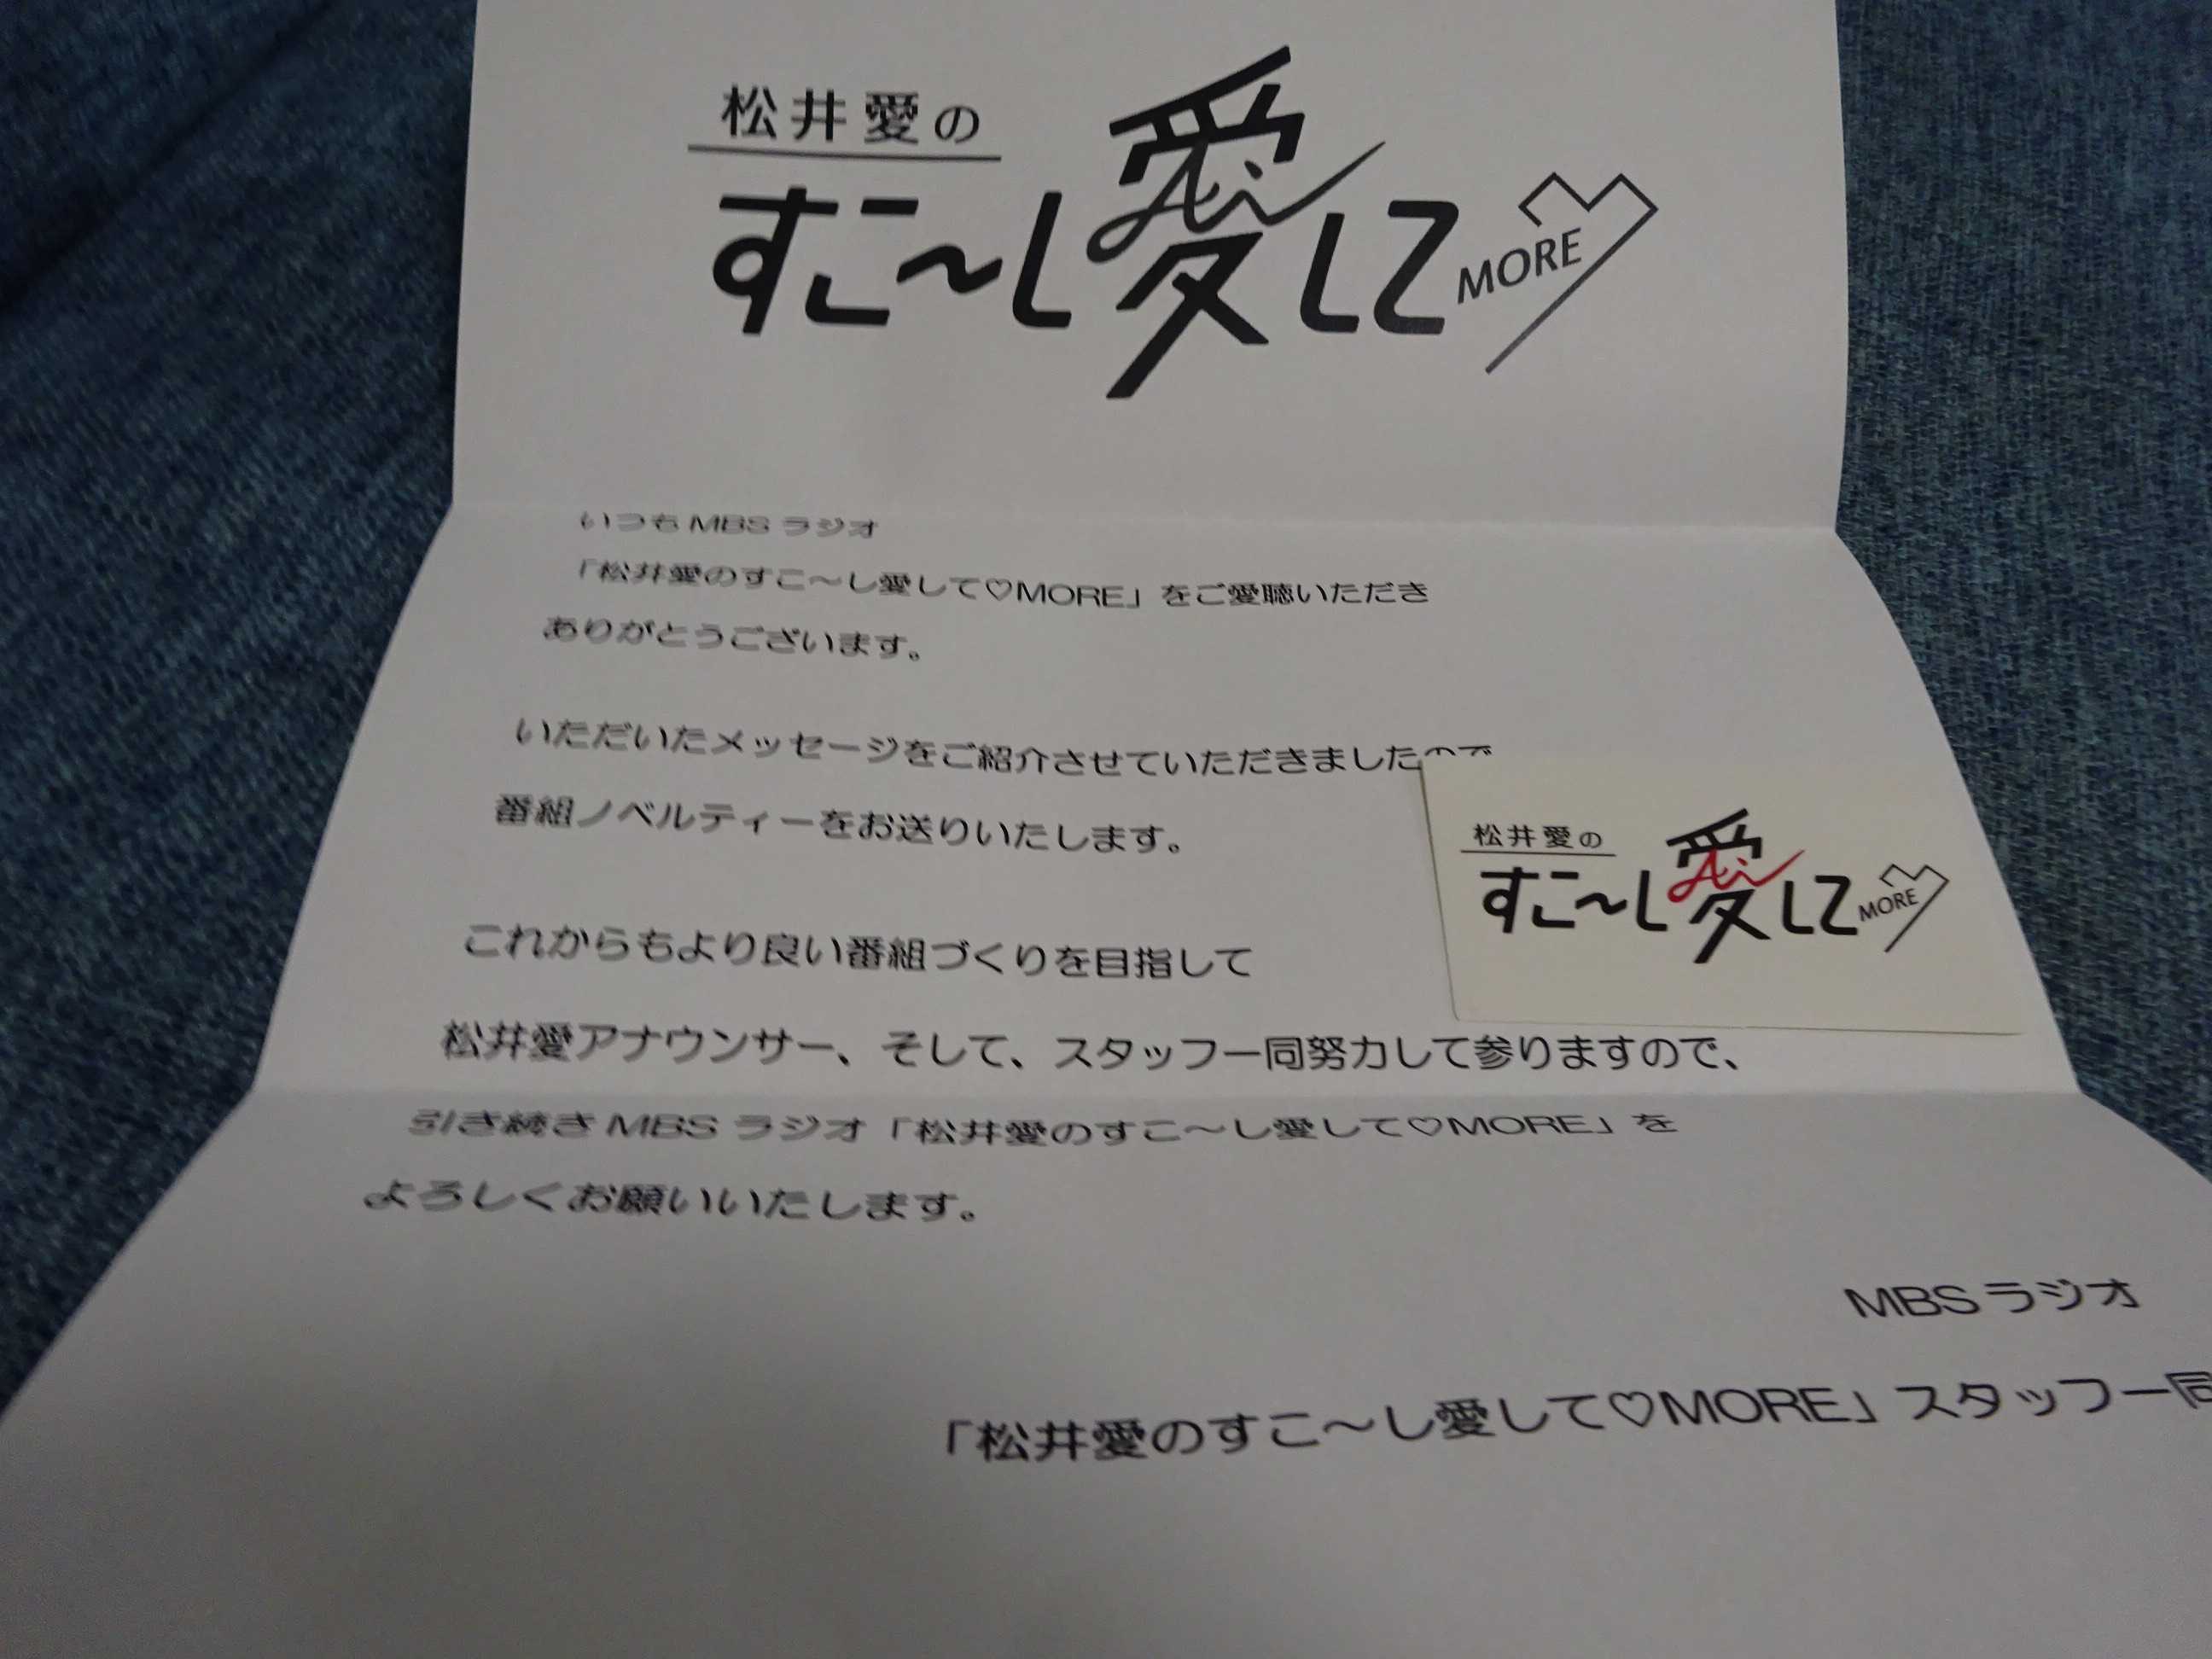 松井愛の
すこ〜し愛して MORE
いつもMBSラジオ
「松井愛のすこ〜し愛して♡MORE」をご愛聴いただき
ありがとうございます。
いただいたメッセージをご紹介させていただきましたので
番組ノベルティーをお送りいたします。
松井愛の
すこ〜し愛して MORE
これからもより良い番組づくりを目指して
松井愛アナウンサー、そして、スタッフ一同努力して参りますので、
引き続きMBSラジオ「松井愛のすこ〜し愛して♡MORE」を
よろしくお願いいたします。
MBSラジオ
「松井愛のすこ〜し愛して♡MORE」スタッフ一同